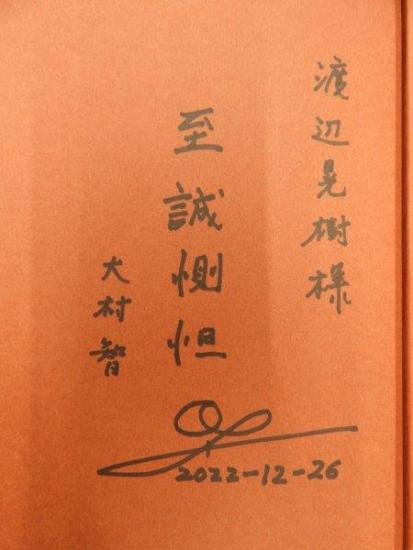 渡辺晃樹様
至誠惻怛
大村智
2022-12-26